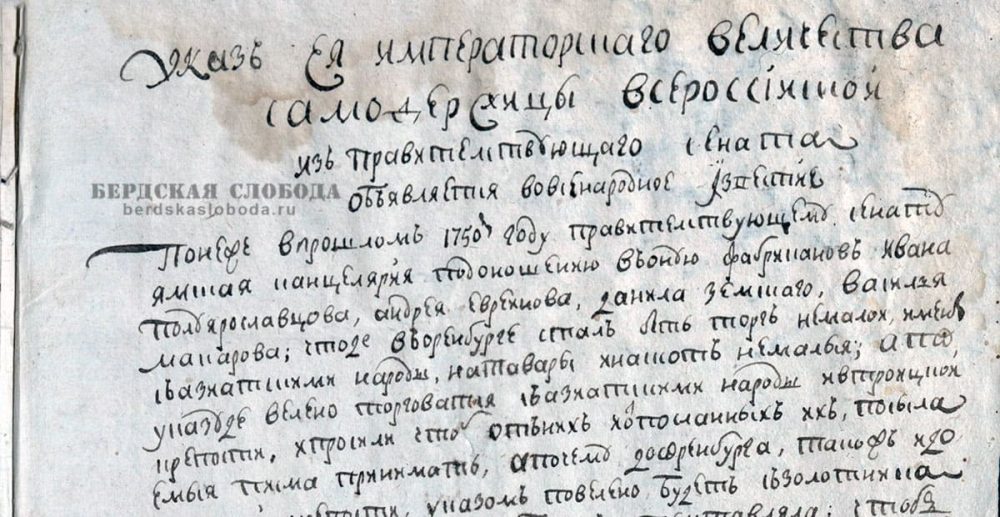 Указъ Ея императорскаго величества
самодержицы всероссійской
изъ правительствующаго сената
объявляется вовсенародное извѣстие
БЕРДСКАЯ СЛОБОДА
berdskasloboda.ru
Понеже впрошломъ 1750м году правительствующему сенату
ямская канцелярия подоношению фабрикановъ ивана
полуярославцова, андрея евреинова, данила земскаго, василья
макарова; чтоде въоренбурге сталъ быть торгъ немалои, имеюъ
сазиатскими народы, натавары инашотъ немалыя; апо
указуде велено торговатъ сазиатскими народы ивтроицкои
крепости, ипросили чтоб отъних ипосланныхъ ихъ, посыла
емыя писма принимать, апочему дооренбурга, такожъ идо
крепости, указомъ повелено будетъ съзолотника